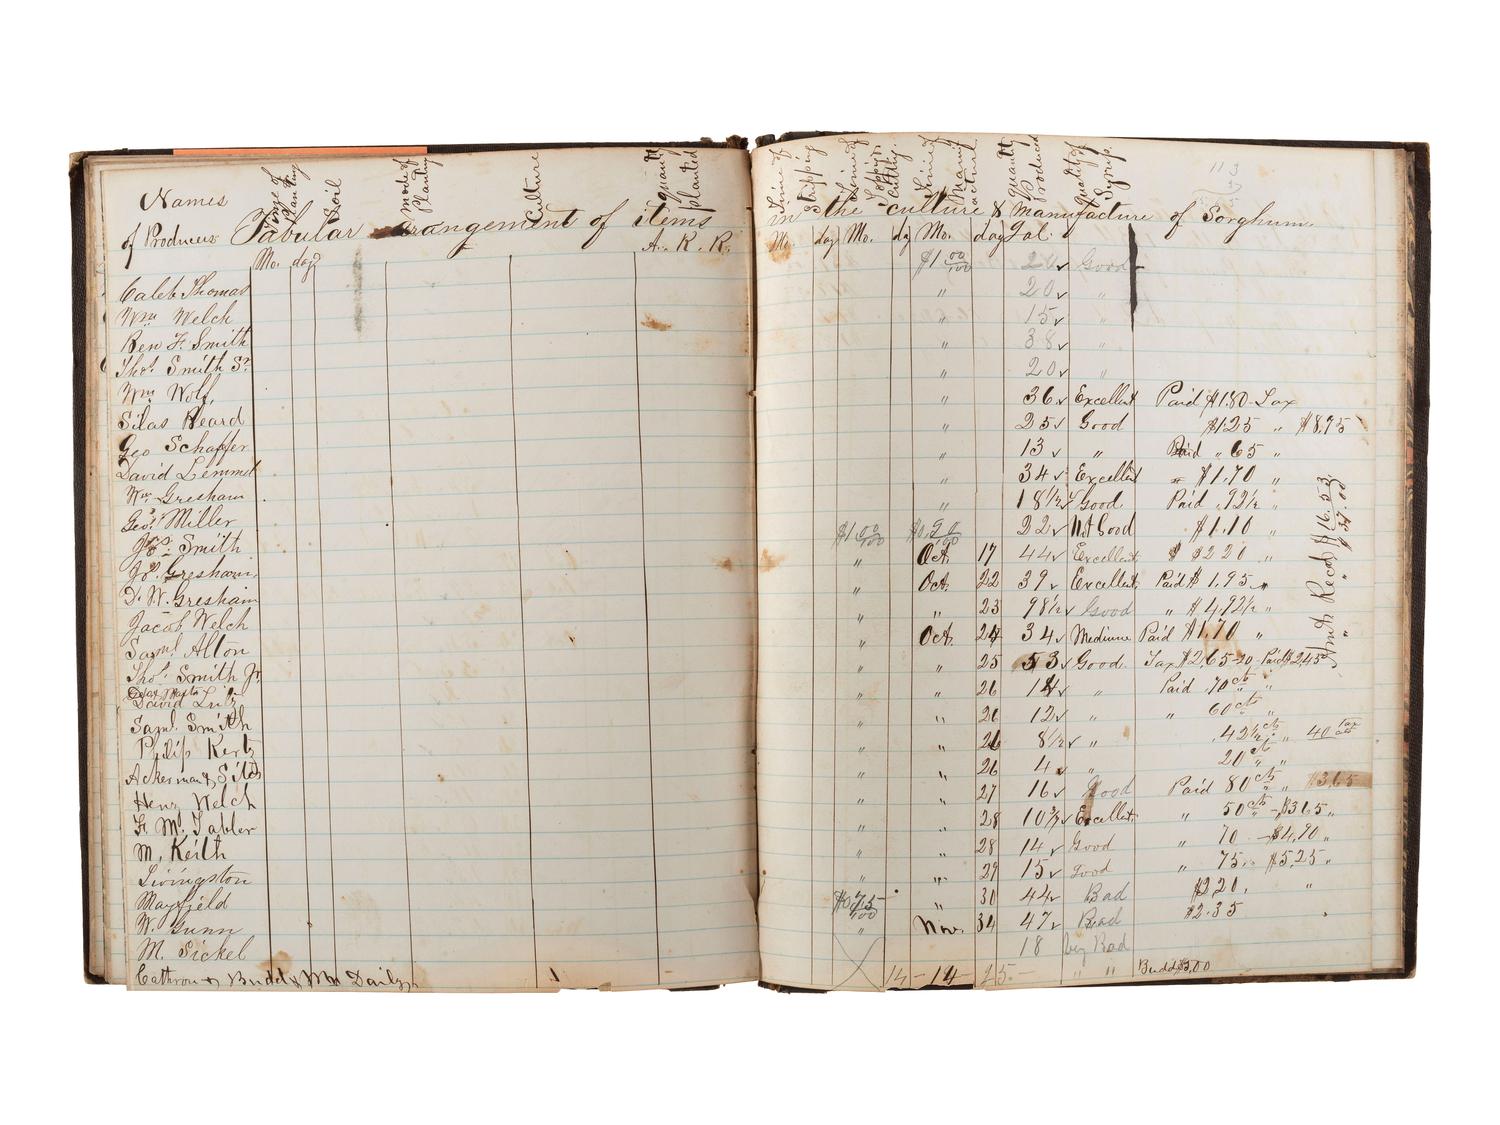 Names
of Producers
Time of Planting
Soil
Mode of Planting
Culture
Quantt planted
Tabular arangement of items
A. R. R.
Mo. day
Caleb Thomas
Wm Welch
Ben F. Smith
Thos. Smith Sr
Wm Wolf,
Silas Beard
Geo Schaffer
David Lemmel
Wm Gresham
Geo. Miller
Smith
Gresham,
D. W. Gresham
Jacob Welch
Saml Alton
Thos. Smith Jr
David Lutz
Saml. Smith
Philip Kertz
Ackerman & Sites
Henz Welch
F. M. Tabler
M, Keith
Livingston
Mayfield
W. Gunn
M. Sickel
Cathron & Budd & Mr Daily
Time of Stripping
Time of Topping & Cutting.
Time of Manufactured
Quantt Produced
Quality of Syrup,
in the culture & manufacture of Sorghum.
Mo. day Mo. dy Mo. day Gal.
$1 00/100 20 Good
" 20 "
" 15 "
" 38 "
" 20 "
" 36 Excellent Paid $1.80 Tax
" 25 Good $1.25 " $8,75
" 13 " Paid " 65 "
" 34 Excellent $1.70 "
" 18 1/2 Good Paid .92 1/2 "
$1 00/100 $0.90/100 22 Not Good $1.10 "
" Oct. 17 44 Excellent $2.20 "
" Oct. 22 39 Excellent Paid $1.95 "
" " 23 98 1/2 Good " $4,92 1/2 "
" Oct. 24 34 Medium Paid $1.70 "
" " 25 53 Good. Tax $2.65-20 Paid $2.45
" " 26 14 " Paid .70 cts "
" " 26 12 " " 60 cts "
" " 26 8 1/2 " .42 1/2 cts " 40 tax
" " 26 4 " 20 cts "
" " 27 16 Good Paid 80 cts $3,65
" " 28 10 Excellent. " 50 cts - $3.65 "
" " 28 14 Good " 70 - $4,90 "
" " 29 15 Good " 75 $5,25 "
$0.75/100 " 30 44 Bad $2.20, "
" Nov. 47 Bad $2.35
18 Bad
14 - 14 25. - " " Budd $5,00
Amt Recd $16.53
" " $37.00